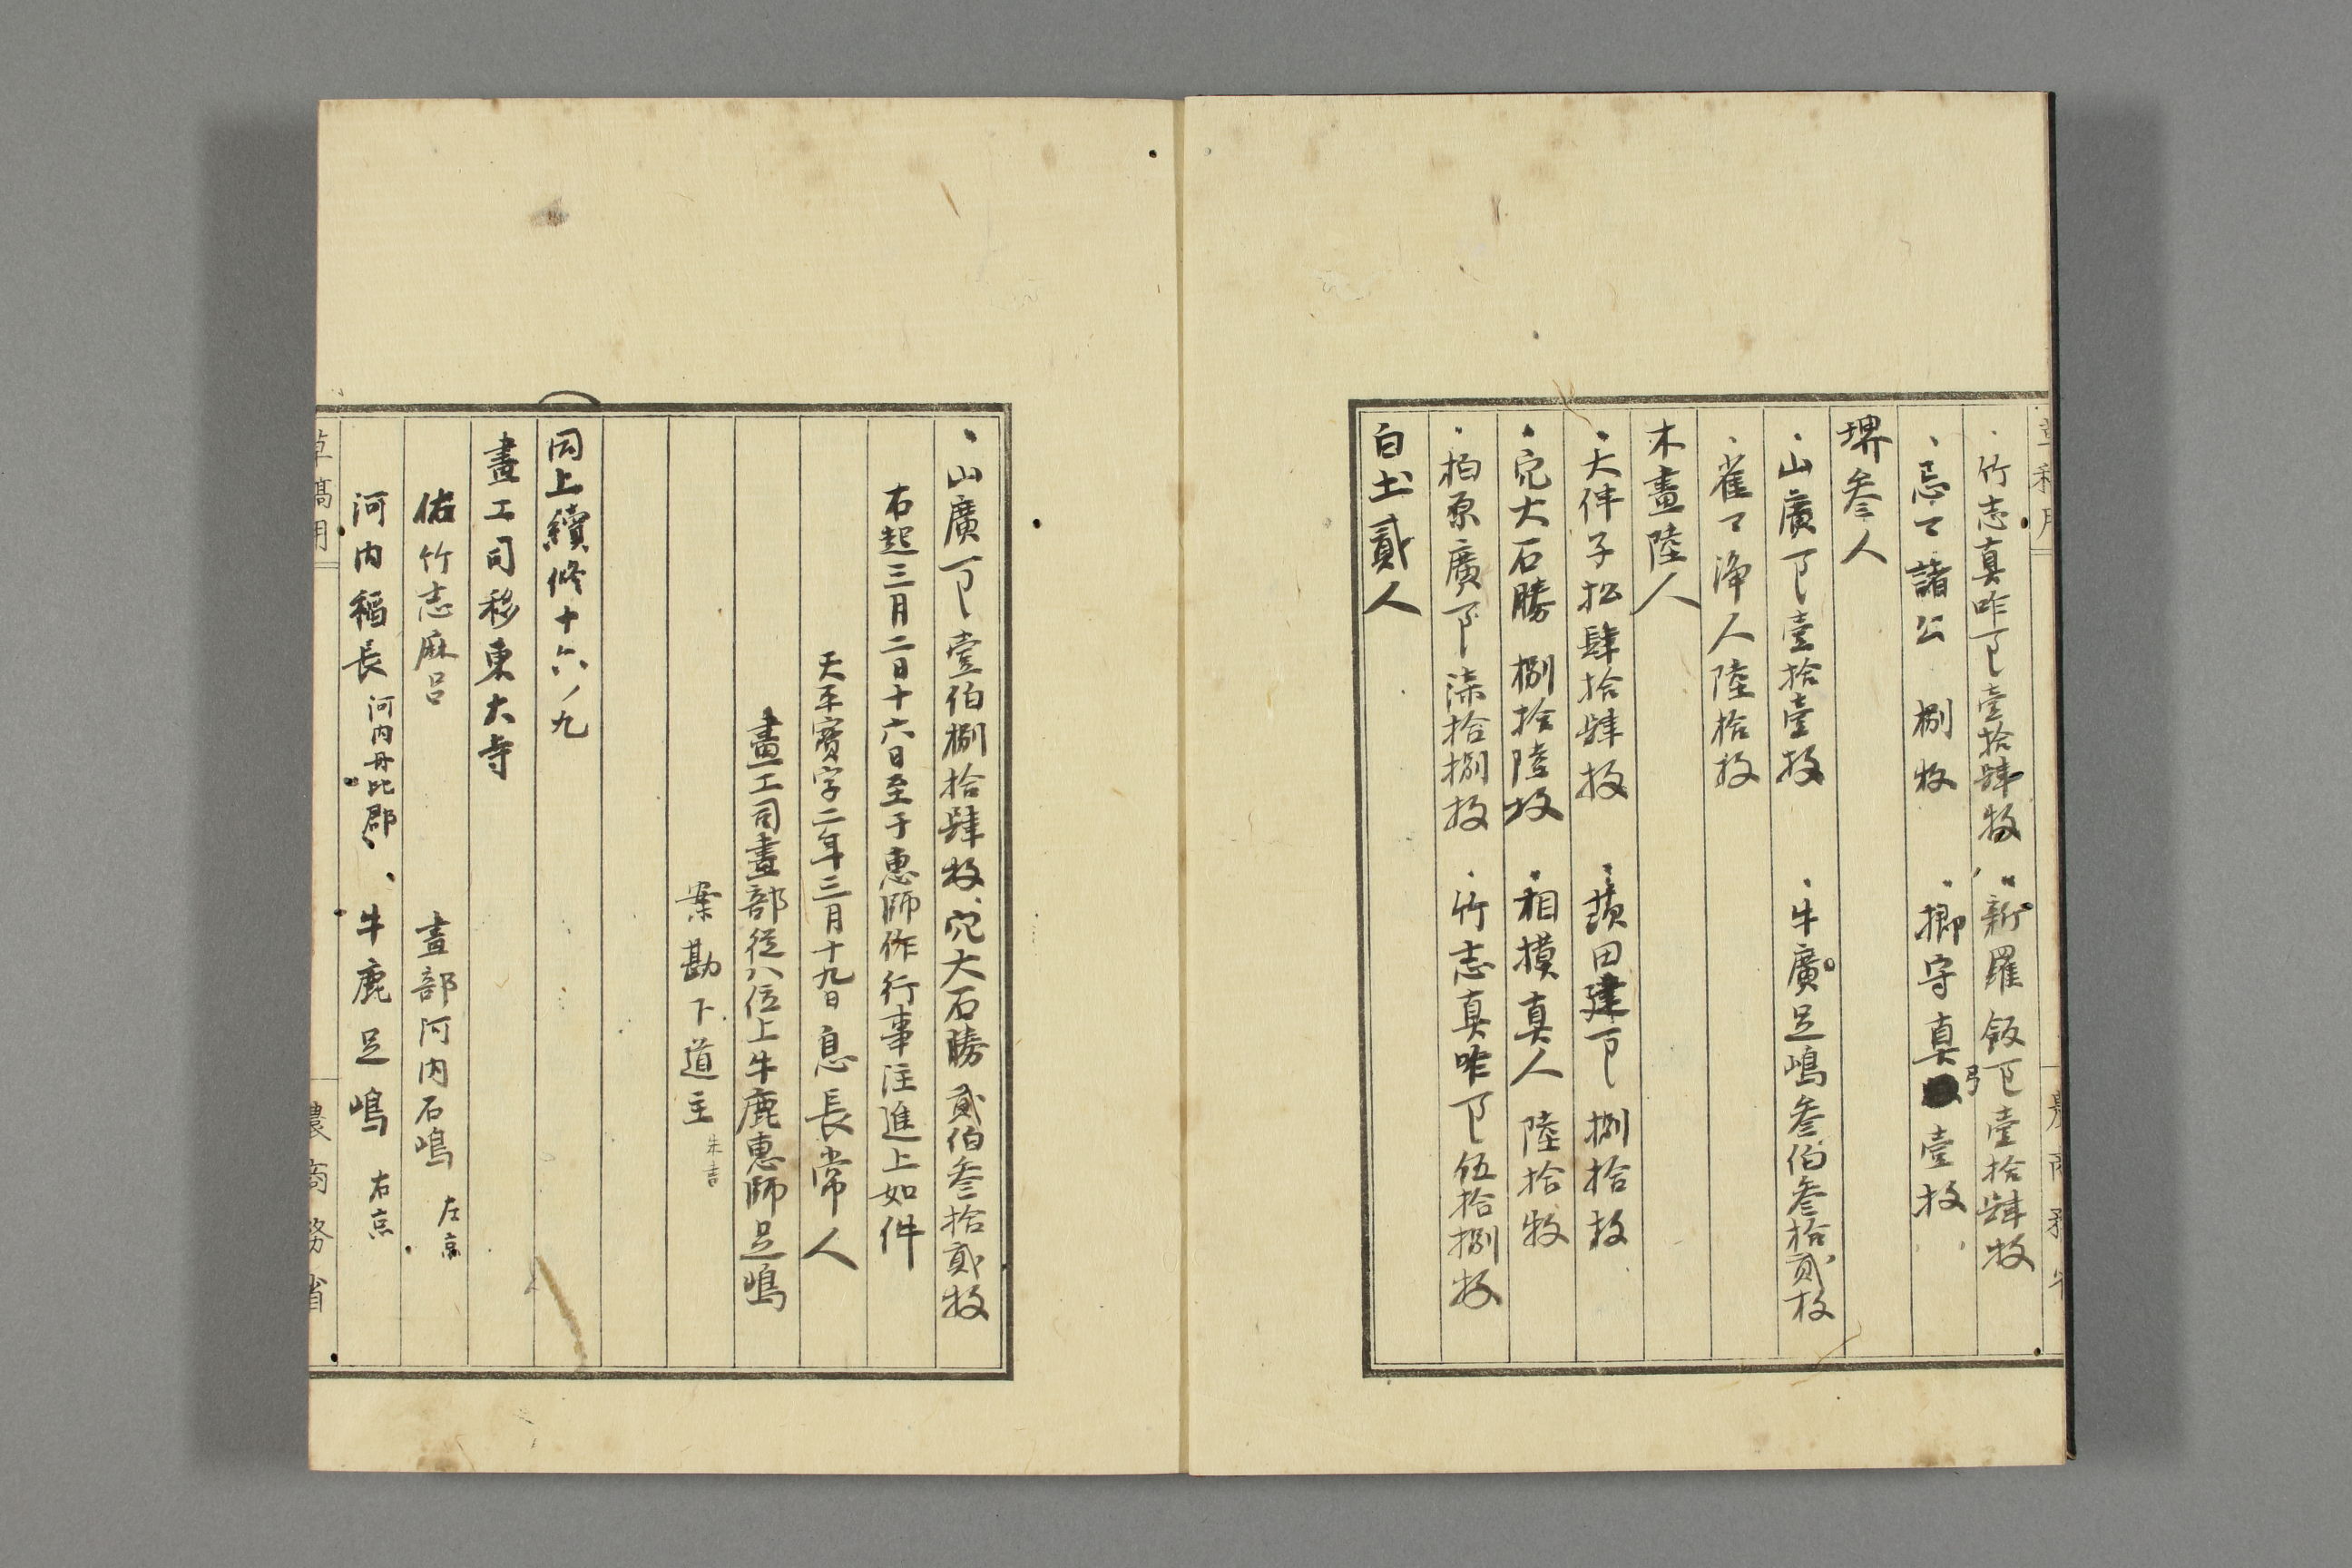 竹志真咋万呂壹拾肆枚 新羅飯万呂壹拾肆枚
忌マ諸公 捌枚 擲守真弓壹枚
堺叄人
山廣万呂壹拾壹枚 牛廣足嶋叄伯叄拾貳枚
雀マ浄人陸拾枚
木畫陸人
大伴子松肆拾肆枚 蓣田建万呂捌拾枚
宍大石勝 捌拾陸枚 相摸真人 陸拾枚
柏原廣万呂漆拾捌枚 竹志真咋万呂伍拾捌枚
白土貳人
山廣万呂 壹伯捌拾肆枚 宍大石勝 貳伯叄拾貳枚
右起三月二日十六日至于惠師作行事注進上如件
天平寳字二年三月十九日 息長常人
畫工司畫部従八位上牛鹿惠師足嶋
案勘下道主 朱書
同上續修十六ノ九
畫工司移東大寺
佑竹志麻呂 畫部河内石嶋 左京
河内稲長 河内丹比郡 牛鹿足嶋 右京
草稿用
農商務省